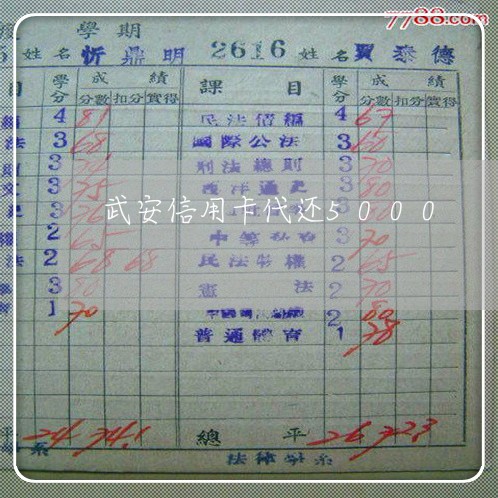 7788.com
學期
5 姓名 忻鼎明 2616 姓名 賈泰德
目 學分 成績 課目 學分 成績
分數 扣分 實得 分數 扣分 實得
4 81 民法債編 4 67
法 3 68 國際公法 3 60
3 刑法總則 3 70
3 75 西洋通史 3 80
3
武安信用卡代还5000
2 65 3 70
法 2 68 68 民法物權 2 65
3 80 憲法 2 70
1 70 2 80
普通體育 1 78
平 24 74.1 總平 26 72.3
系 法律學系